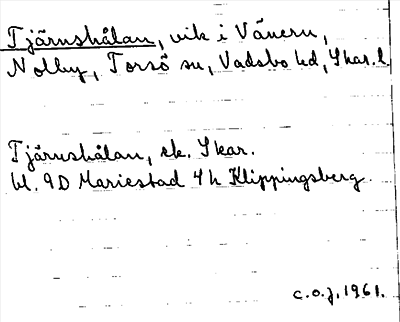 Tjärnshålan, vik i Vänern,
Nolby, Torsö sn, Vadsbo hd, Skar. l.
Tjärnshålan, ek. Skar.
bl. 9D Mariestad 4h Klippingsberg.
C.O.J. 1961.